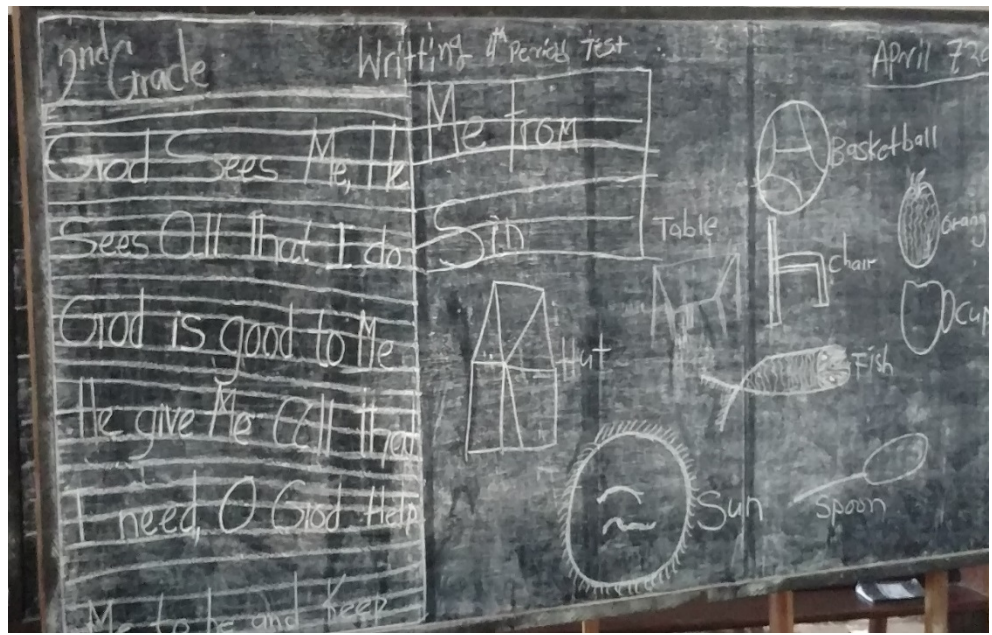 2nd Grade
Writting 4th Period Test
April 7
God Sees Me, He
Sees All that I do
God is good to Me
He give Me All that
I need, O God Help
Me to be and Keep
Me from
Sin
Hut
Table
Sun
Basketball
Orang
Chair
Cup
Fish
Spoon